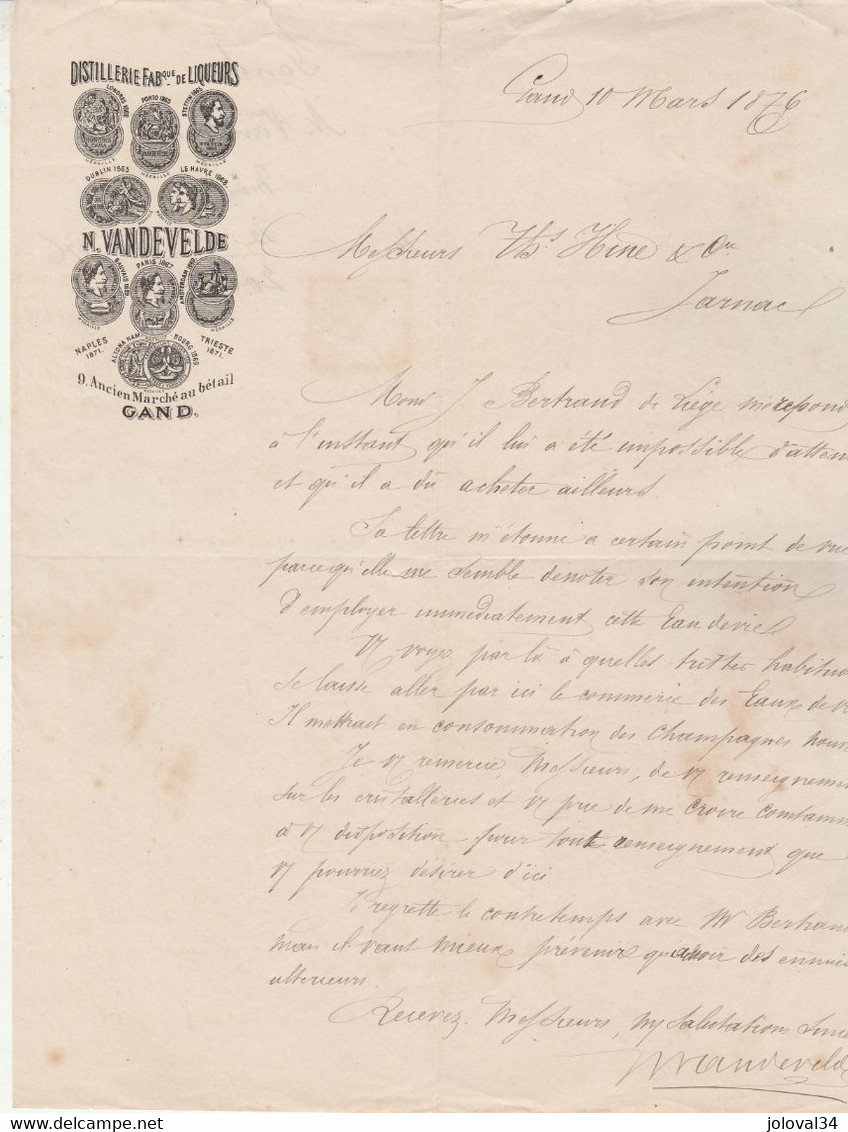 DISTILLERIE FABque DE LIQUEURS
LONDRES 1862
PORTO 1865
STETTIN 1865
MÉDAILLE
MÉDAILLE
MÉDAILLE
DUBLIN 1865
LE HAVRE 1868
N. VANDEVELDE
BEAUVAIS
PARIS 1867
AMSTERDAM
MÉDAILLE
MÉDAILLE
NAPLES 1871.
ALTONA HAMBOURG 1869
TRIESTE 1871.
9, Ancien Marché au bétail
GAND.
Gand 10 Mars 1876
Messieurs Ths Hine & Cie
Jarnac
Monsr J. Bertrand de Liége me repond
à l'instant qu'il lui a été impossible d'atten
et qu'il a dû acheter ailleurs.
Sa lettre m'étonne a certain point de vue
parce qu'elle me semble denoter son intention
d'employer immediatement cette Eau de vie
Vs voyez par là à quelles tristes habitu
se laisse aller par ici le commerce des Eaux de v
Il mettrait en consommation des Champagnes nouv
Je vs remercie, Messieurs, de vs renseignemen
sur les cristalleries et vs prie de me croire constamm
à vs disposition pour tout renseignement que
vs pourriez désirer d'ici
Je regrette le contretemps avec Mr Bertran
mais il vaut mieux prévenir qu'avoir des ennuis
ulterieurs.
Recevez, Messieurs, mes salutations sinc
NVandevelde
delcampe.net
joloval34